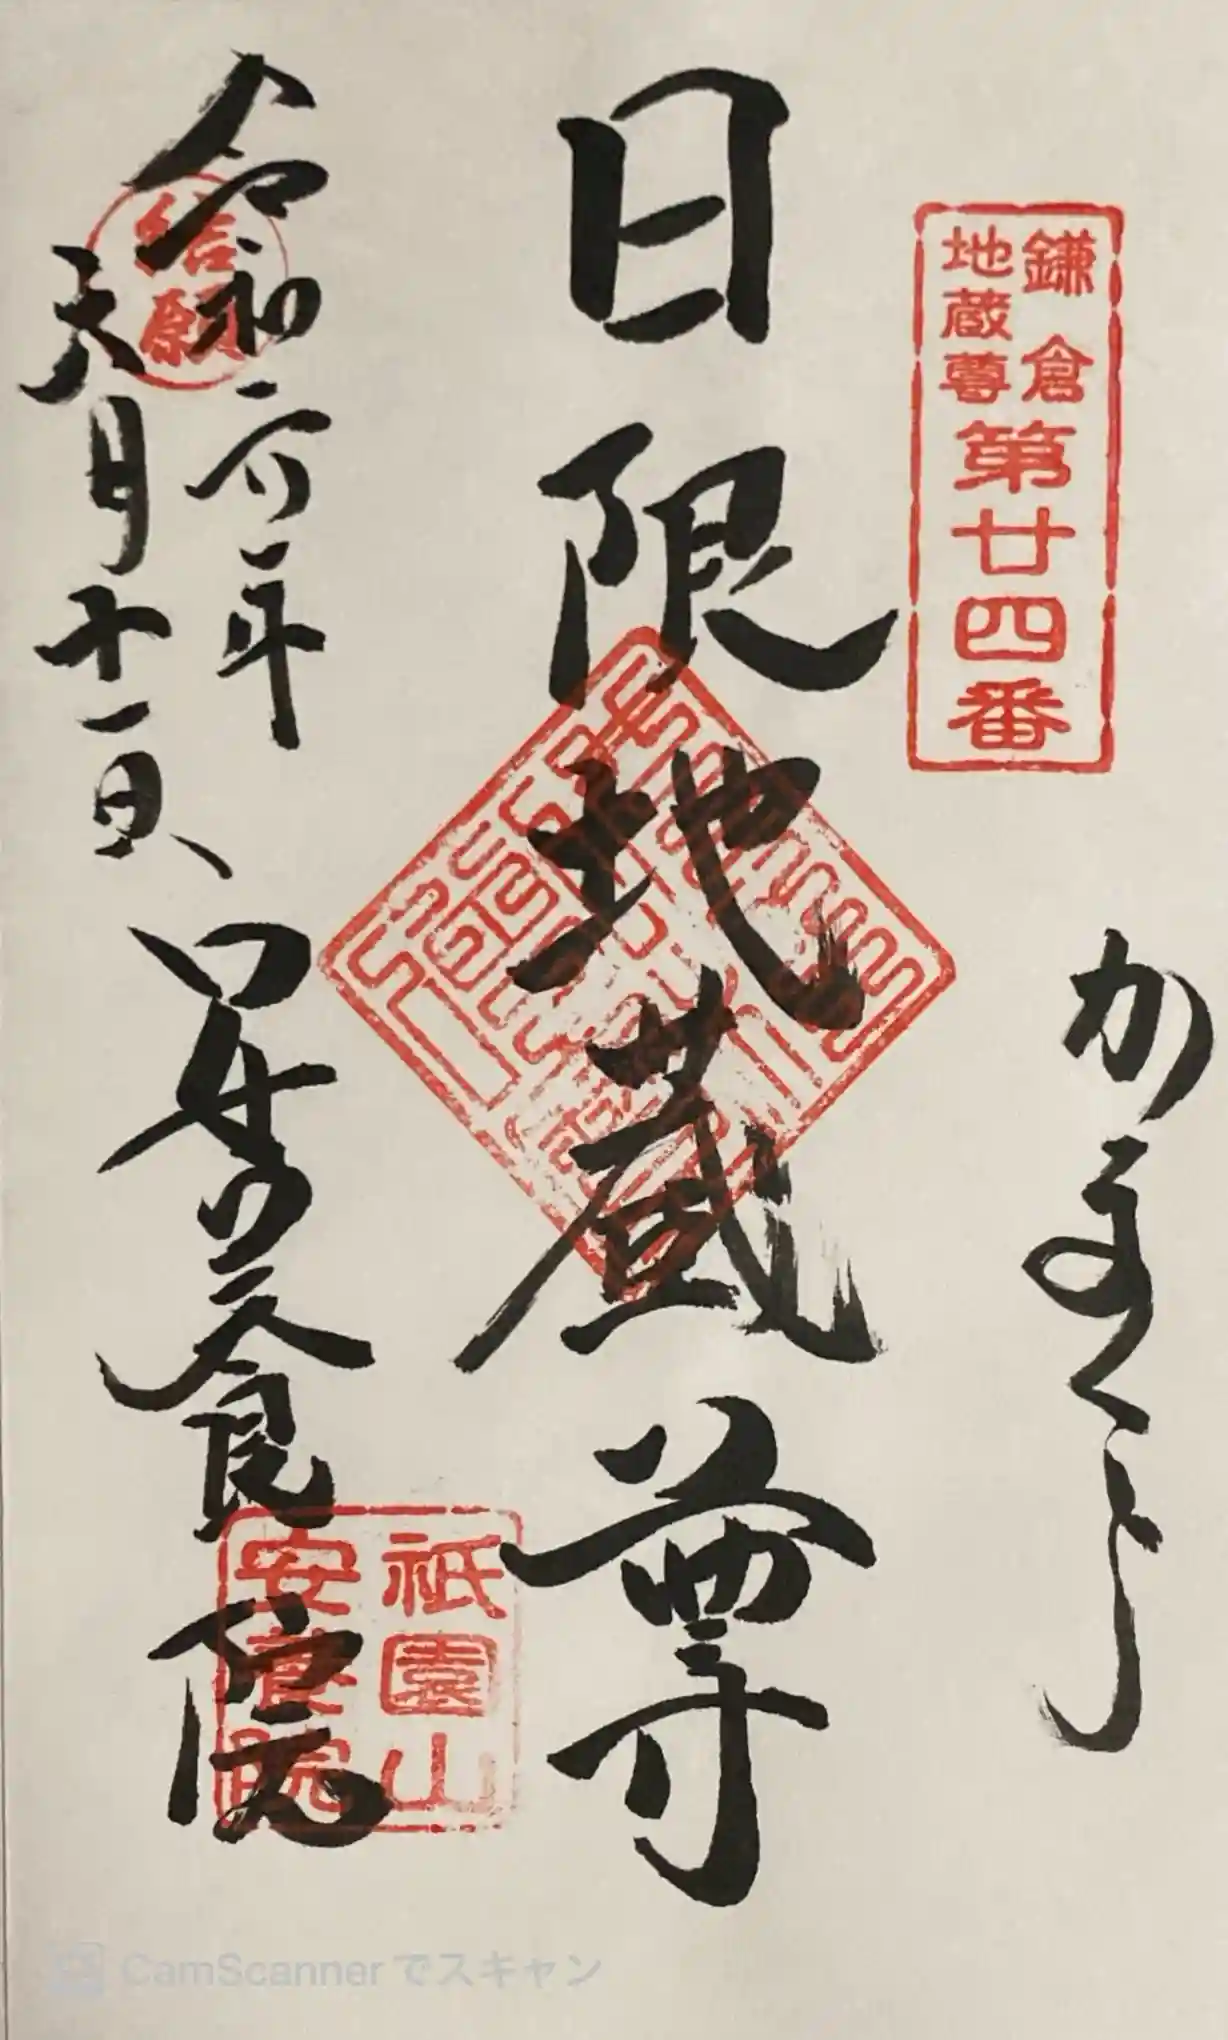 鎌倉
地蔵尊
第廿四番
かまくら
日限地蔵尊
令和六年
六月十一日
結願
安養院
祇園山
安養院
CamScannerでスキャン